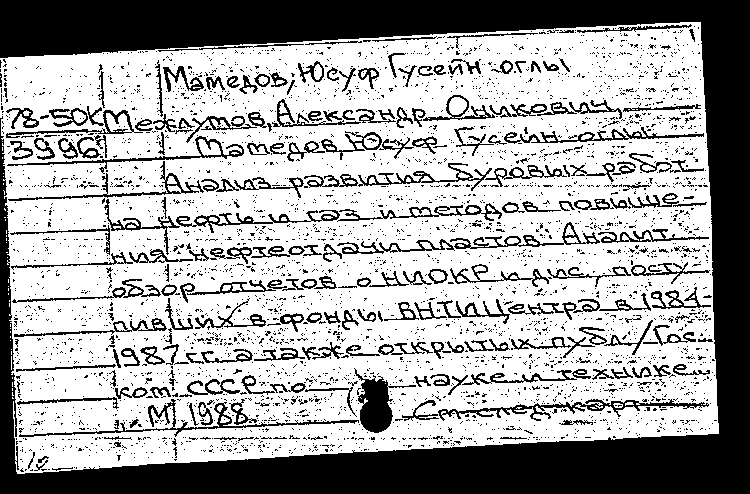 Мамедов, Юсуф Гусейн оглы
78-50К Межлумов, Александр Оникович,
3996 Мамедов, Юсуф Гусейн оглы.
Анализ развития буровых работ
на нефть и газ и методов повыше-
ния нефтеотдачи пластов: Аналит.
обзор отчетов о НИОКР и дис., посту-
пивших в фонды ВНТИЦентра в 1984-
1987 гг. а также открытых публ. / Гос.
ком. СССР по науке и технике.
М., 1988. См. след. карт.